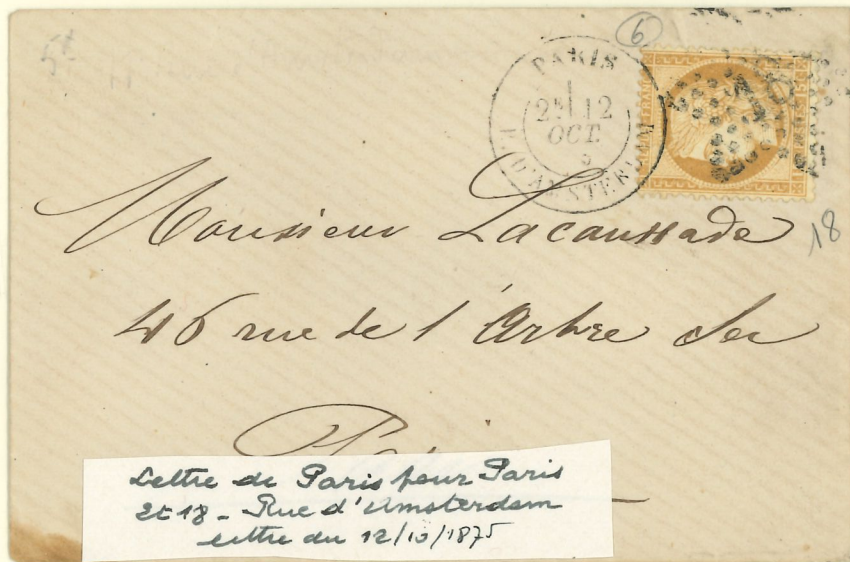 5t
6
PARIS
2E 12
OCT.
R. D'AMSTERDAM
18
Monsieur Lacaussade
46 rue de l'Arbre Sec
Lettre de Paris pour Paris
Et 18 - Rue d'Amsterdam
lettre du 12/10/1875